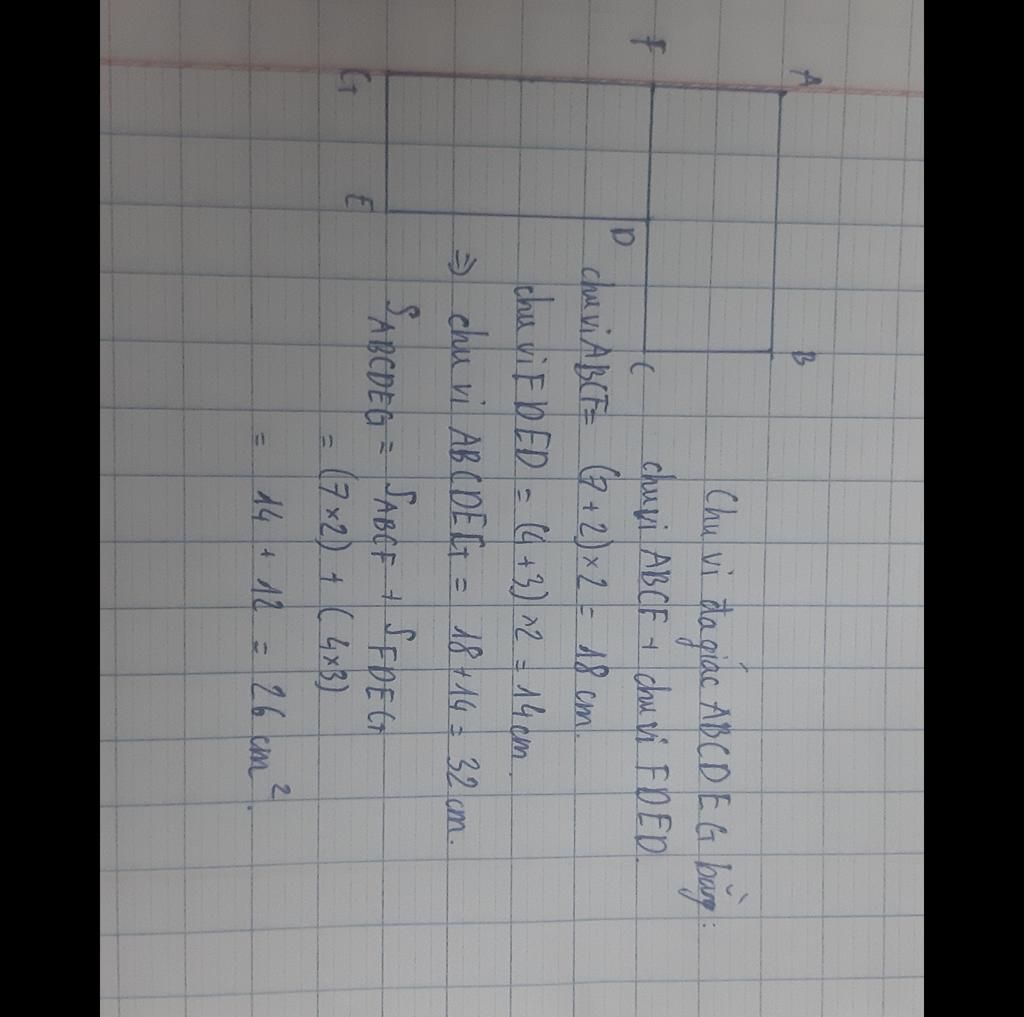 A B
F D C
G E
Chu vi đa giác ABCDEG bằng:
chu vi ABCF + chu vi FDED.
chu vi ABCF = (7+2)×2 = 18 cm.
chu vi FDED = (4+3)×2 = 14 cm.
=> chu vi ABCDEG = 18+14 = 32 cm.
SABCDEG = SABCF + SFDEG
= (7×2) + (4×3)
= 14 + 12 = 26 cm².